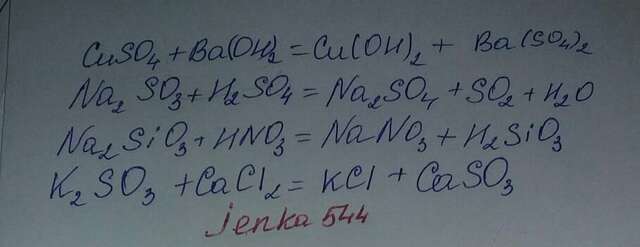 CuSO₄ + Ba(OH)₂ = Cu(OH)₂ + Ba(SO₄)₂
Na₂SO₃ + H₂SO₄ = Na₂SO₄ + SO₂ + H₂O
Na₂SiO₃ + HNO₃ = NaNO₃ + H₂SiO₃
K₂SO₃ + CaCl₂ = KCl + CaSO₃
jenka544